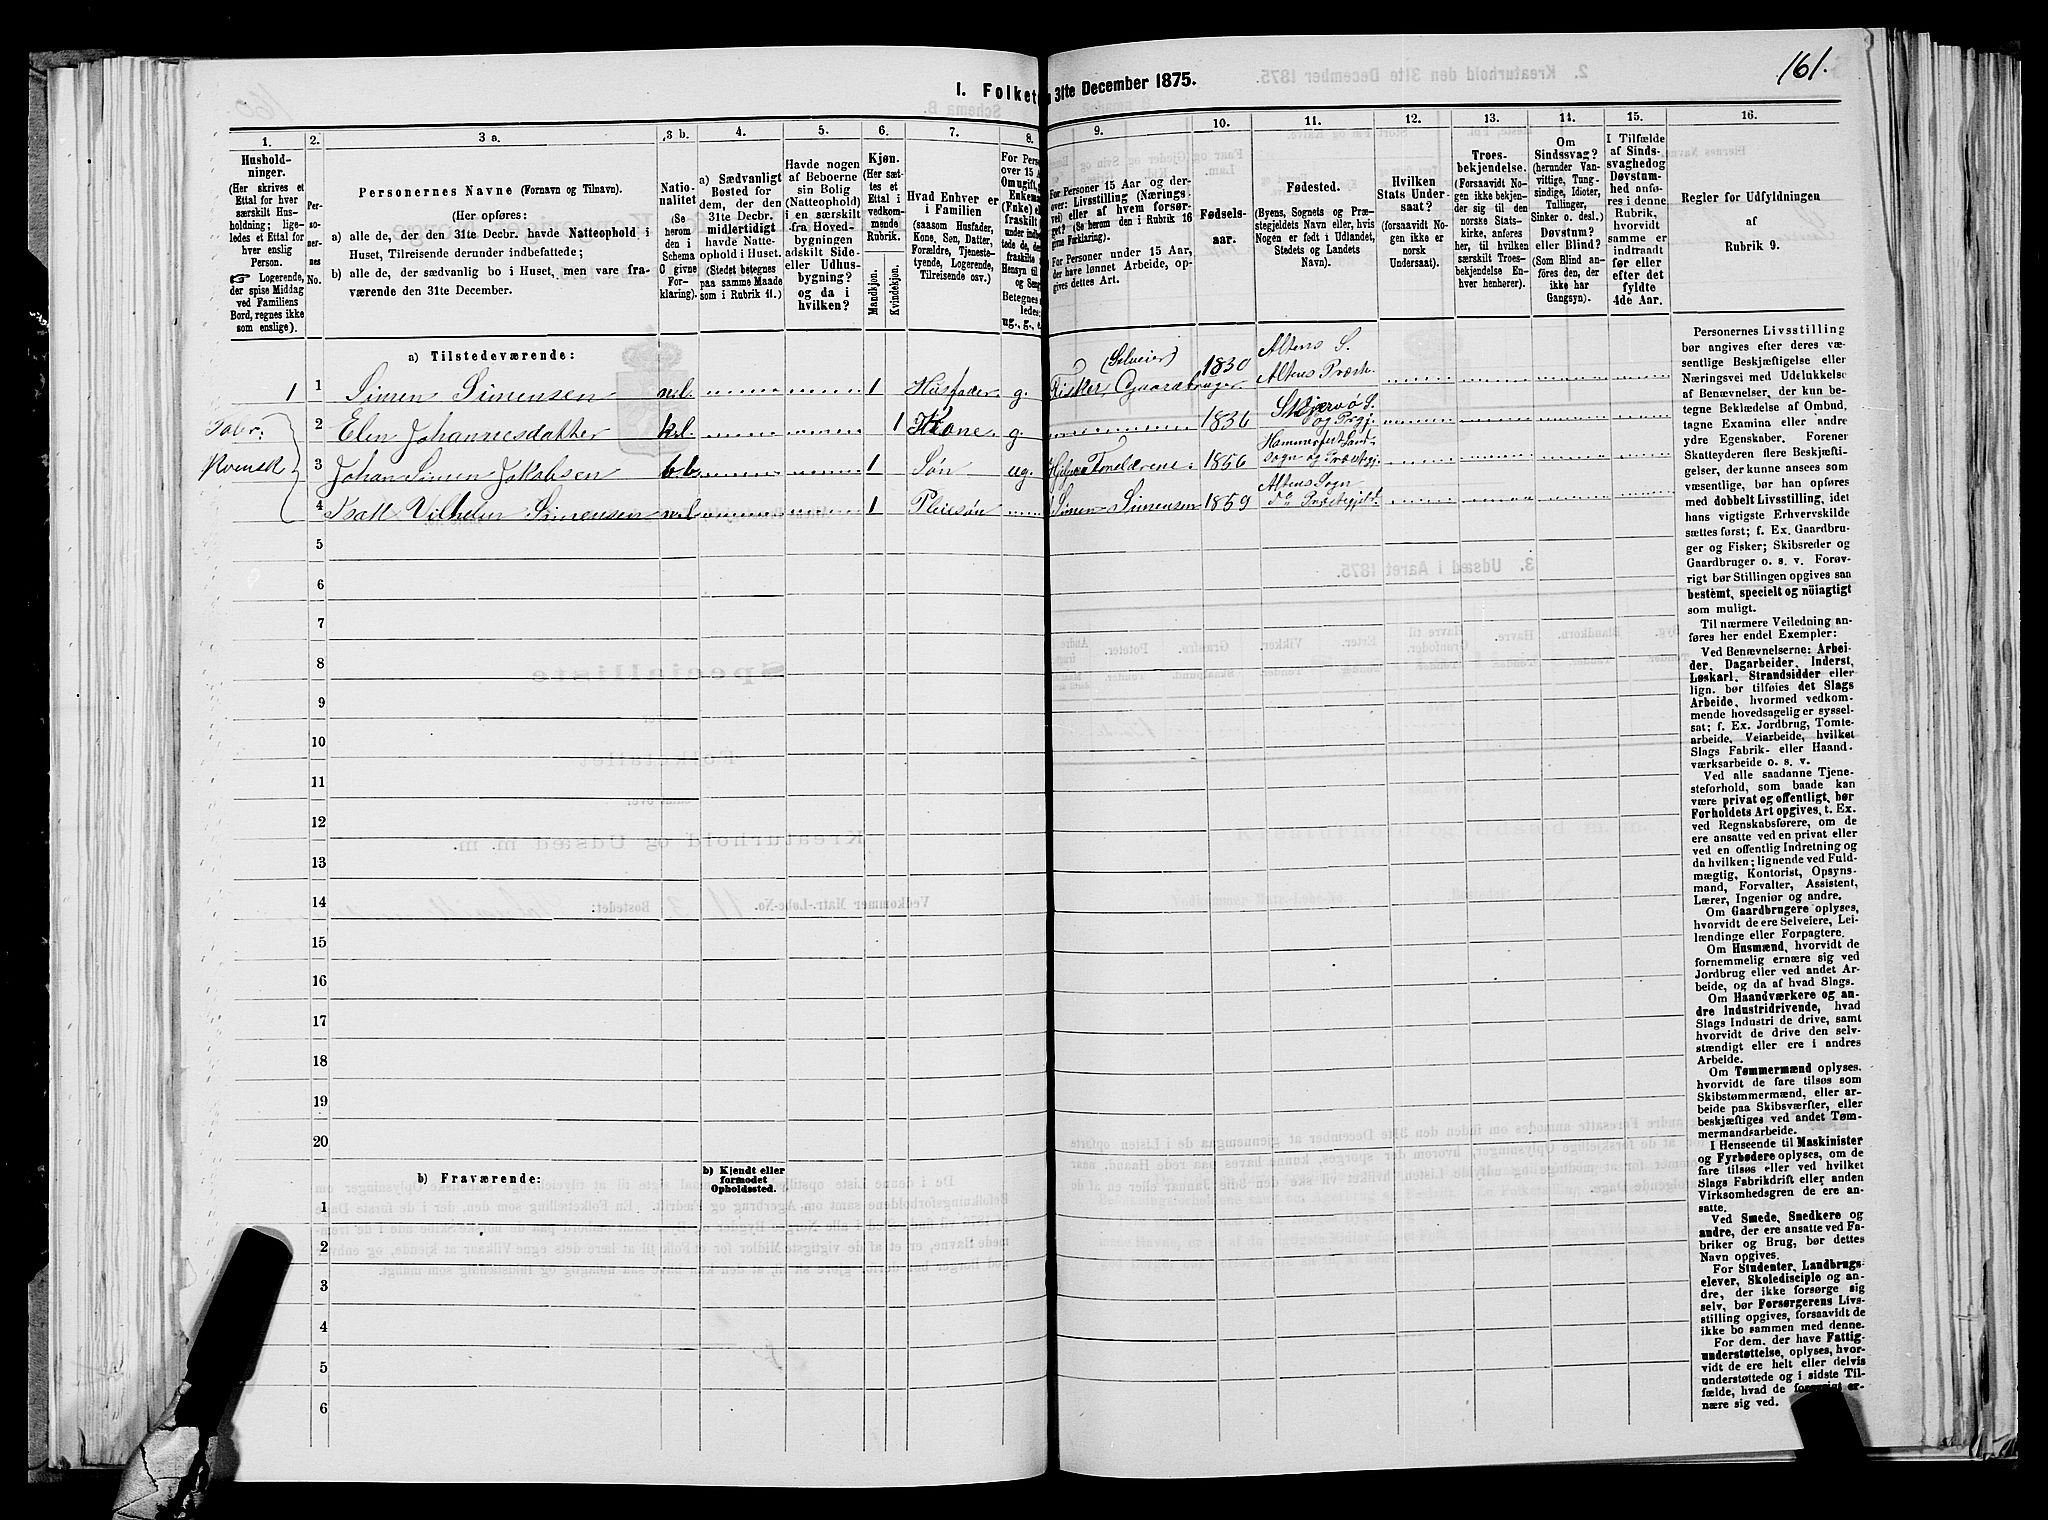 161.
I. Folket
31te December 1875.
1.
2.
3 a.
3 b.
4.
5.
6.
7.
8.
9.
10.
11.
12.
13.
14.
15.
16.
Hushold-
ninger.
(Her skrives et
Ettal for hver
særskilt Hus-
holdning; lige-
ledes et Ettal for
hver enslig
Person.
☞ Logerende,
der spise Middag
ved Familiens
Bord, regnes ikke
som enslige).
Per-
so-
ner-
nes
No.
Personernes Navne (Fornavn og Tilnavn).
(Her opføres:
a) alle de, der den 31te Decbr. havde Natteophold i
Huset, Tilreisende derunder indbefattede;
b) alle de, der sædvanlig bo i Huset, men vare fra-
værende den 31te December.
Natio-
nalitet
(Se
herom
den i
Schema
C givne
For-
klaring).
a) Sædvanligt
Bosted for
dem, der den
31te Decbr.
midlertidigt
havde Natte-
ophold i Huset.
(Stedet betegnes
paa samme Maade
som i Rubrik 11.)
Havde nogen
af Beboerne
sin Bolig
(Natteophold)
i en særskilt
fra Hoved-
bygningen
adskilt Side-
eller Udhus-
bygning?
og da i
hvilken?
Kjøn.
(Her sæt-
tes et
Ettal i
vedkom-
mende
Rubrik.
Mandkjøn.
Kvindekjøn.
Hvad Enhver er
i Familien
(saasom Husfader,
Kone, Søn, Datter,
Forældre, Tjeneste-
tyende, Logerende,
Tilreisende osv.)
For Perso
over 15 A
Om ugift,
Enkema
(Enke) e
fraskilt
under inb
tede de,
fraskilte
Hensyn til
og Seng
Betegnes
ledes:
ug., g., e.
For Personer 15 Aar og der-
over: Livsstilling (Nærings-
vei) eller af hvem forsør-
get? (Se herom i Rubrik 16
givne Forklaring).
For Personer under 15 Aar,
der have lønnet Arbeide, op-
gives dettes Art.
Fødsels-
aar.
Fødested.
(Byens, Sognets og Præ-
stegjeldets Navn eller, hvis
Nogen er født i Udlandet,
Stedets og Landets
Navn).
Hvilken
Stats Under-
saat?
(forsaavidt No-
gen ikke er
norsk
Undersaat).
Troes-
bekjendelse.
(Forsaavidt No-
gen ikke bekjen-
der sig til den
norske Stats-
kirke, anføres
her, til hvilken
særskilt Troes-
bekjendelse En-
hver henhører).
Om
Sindssvag?
(herunder Van-
vittige, Tung-
sindige, Idioter,
Tullinger,
Sinker o. desl.)
Døvstum?
eller Blind?
(Som Blind an-
føres den, der
ikke har
Gangsyn).
I Tilfælde
af Sinds-
svaghed og
Døvstum-
hed anfø-
res i denne
Rubrik,
hvorvidt
samme er
indtraadt
før eller
efter det
fyldte
4de Aar.
Regler for Udfyldningen
af
Rubrik 9.
a) Tilstedeværende:
1 1 Simen Simensen nrl. 1 Husfader g. Fisker, Gaardbruger (Selveier) 1830 Altens S. Altens Præstg.
Taler: 2 Elen Johannesdatter krl. 1 Kone. g 1836 Skjærvø S. og Prgj.
Kvensk 3 Johan Simen Jakobsen bb. 1 Søn ug. Hjelper Forældrene. 1856 Hammerfest Land-sogn og Præstegj.
4 Isak Vilhelm Simensen nrl 1 Pleiesøn Simen Simensen 1859 Altens Sogn do Præstegjeld.
5
6
7
8
9
10
11
12
13
14
15
16
17
18
19
20
b) Fraværende:
b) Kjendt eller
formodet
Opholdssted.
1
2
3
4
5
6
Personernes Livsstilling
bør angives efter deres væ-
sentlige Beskjæftigelse eller
Næringsvei med Udelukkelse
af Benævnelser, der kun be-
tegne Beklædelse af Ombud,
tagne Examina eller andre
ydre Egenskaber. Forener
Skatteyderen flere Beskjæfti-
gelser, der kunne ansees som
væsentlige, bør han opføres
med dobbelt Livsstilling, idet
hans vigtigste Erhvervskilde
sættes først; f. Ex. Gaardbru-
ger og Fisker; Skibsreder og
Gaardbruger o. s. v. Forøv-
rigt bør Stillingen opgives saa
bestemt, specielt og nöiagtigt
som muligt.
Til nærmere Veiledning an-
føres her endel Exempler:
Ved Benævnelserne: Arbei-
der, Dagarbeider, Inderst,
Løskarl, Strandsidder eller
lign. bør tilføies det Slags
Arbeide, hvormed vedkom-
mende hovedsagelig er syssel-
sat; f. Ex. Jordbrug, Tomte-
arbeide, Veiarbeide, hvilket
Slags Fabrik- eller Haand-
værksarbeide o. s. v.
Ved alle saadanne Tjene-
steforhold, som baade kan
være privat og offentligt, bør
Forholdets Art opgives, t. Ex.
ved Regnskabsførere, om de
ere ansatte ved en privat eller
ved en offentlig Indretning og
da hvilken; lignende ved Fuld-
mægtig, Kontorist, Opsyns-
mand, Forvalter, Assistent,
Lærer, Ingeniør og andre.
Om Gaardbrugere oplyses,
hvorvidt de ere Selveiere, Lei-
lændinge eller Forpagtere.
Om Husmænd, hvorvidt de
fornemmelig ernære sig ved
Jordbrug eller ved andet Ar-
beide, og da af hvad Slags.
Om Haandværkere og an-
dre Industridrivende, hvad
Slags Industri de drive, samt
hvorvidt de drive den selv-
stændigt eller ere i andres
Arbeide.
Om Tømmermænd oplyses,
hvorvidt de fare tilsøs som
Skibstømmermænd, eller ar-
beide paa Skibsværfter, eller
beskjæftiges ved andet Tøm-
mermandsarbeide.
I Henseende til Maskinister
og Fyrbødere oplyses, om de
fare tilsøs eller ved hvilket
Slags Fabrikdrift eller anden
Virksomhedsgren de ere an-
satte.
Ved Smede, Snedkere og
andre, der ere ansatte ved Fa-
briker og Brug, bør dettes
Navn opgives.
For Studenter, Landbrugs-
elever, Skoledisciple og an-
dre, der ikke forsørge sig
selv, bør Forsørgerens Livs-
stilling opgives, forsaavidt de
ikke bo sammen med denne.
For dem, der have Fattig-
understøttelse, oplyses, hvor-
vidt de ere helt eller delvis
understøttede og i sidste Til-
fælde, hvad de forøvrigt er-
nære sig ved.